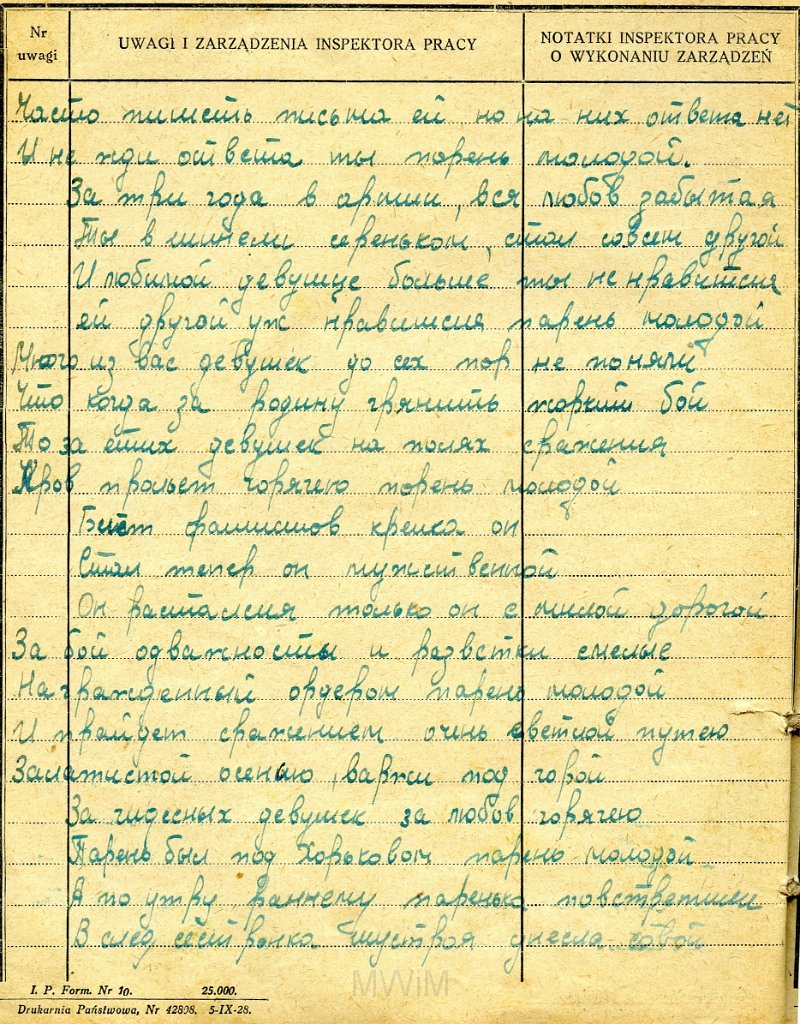 Nr uwagi
UWAGI I ZARZĄDZENIA INSPEKTORA PRACY
NOTATKI INSPEKTORA PRACY O WYKONANIU ZARZĄDZEŃ
Часто пишеть письма ей но на них ответа нет
И не жди оствета ты порень молодой.
За три года в армии, вся любов забытая
Ты в шинели сереньком, стал совсем другой
И любимой девушце больше ты не нравишся
ей другой уж нравишся парень молодой
Много из вас девушек до сех пор не поняли
Что когда за родину грянить жоркий бой
То за етих девушек на полях сражения
Кров прольет горячею порень молодой
Бьёт фашистов крепка он
Стал тепер он мужственной
Он растался только он с милой дорогой
За бой одважносты и развстки смелые
Награжденный ордером парень молодой
И прайдет сражением очнь светлой путею
Залатистой осенью, под горой
За чидесных девушек за любов горячею
Парень был под Хорьковом парень молодой
А по утру раннему паренька повстретили
В след сестрёнка шустроя унесла собой
MWiM
I. P. Form. Nr 10. 25.000.
Drukarnia Państwowa, Nr 42898. 5-IX-28.